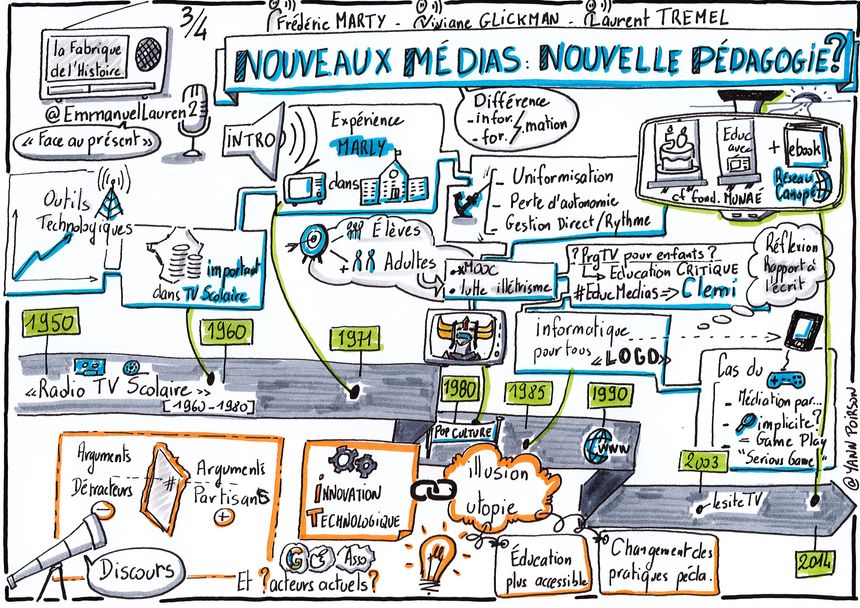 3/4
Frédéric MARTY - Viviane GLICKMAN - Laurent TREMEL
la Fabrique
de l'Histoire
NOUVEAUX MÉDIAS: NOUVELLE PÉDAGOGIE?
@EmmanuelLauren2
« Face au présent »
INTRO
Expérience
MARLY
dans
Différence
- infor.
- for. mation
Educ
avec
+ ebook
Réseau
Canopé
cf fond. MUNAÉ
Outils
Technologiques
important
dans TV Scolaire
- Uniformisation
- Perte d'autonomie
- Gestion Direct/Rythme
Élèves
+ Adultes
MOOC
• lutte illétrisme
? PrgTV pour enfants ?
Education CRITIQUE
#EducMedias => Clemi
Réflexion
Rapport à
l'écrit
1950
1960
1971
Informatique
pour tous « LOGO »
« Radio TV Scolaire »
[1960-1980]
1980
1985
1990
POP CULTURE
www
Cas du
- Médiation par...
implicite?
= Game Play
"Serious Game"
2003
lesiteTV
2014
@YANN POIRSON
Arguments
Détracteurs
-
#
Arguments
Partisans
+
INNOVATION
TECHNOLOGIQUE
illusion
utopie
Discours
G
Asso
Et ? acteurs actuels?
Éducation
plus accessible
Changement des
pratiques péda.